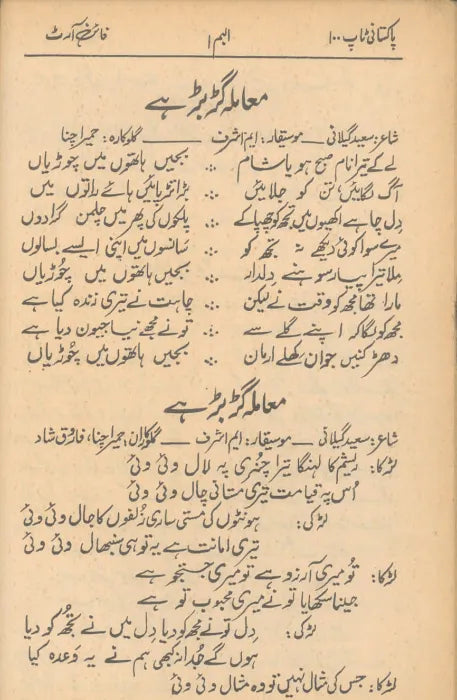 پاکستانی ٹاپ ۱۰۰ البم ۱ فائن آرٹ
معاملہ گڑبڑ ہے
شاعر: سعید گیلانی — موسیقار: ایم اشرف — گلوکارہ: حمیرا چنا
لے کے تیرا نام صبح ہو یا شام ∴ بجیں ہاتھوں میں چوڑیاں
آگ لگائیں، تن کو جلائیں ∴ بڑا تڑپائیں ہائے راتوں میں
دل چاہے اکھیوں میں تجھ کو چھپا کے ∴ پلکوں کی پھر میں چلمن گرا دوں
میرے سوا کوئی دیکھے نہ تجھ کو ∴ سانسوں میں اپنی ایسے بسا لوں
ملا تیرا پیار سوہنے دلدار ∴ بجیں ہاتھوں میں چوڑیاں
مارا تھا مجھ کو وقت نے لیکن ∴ چاہت نے تیری زندہ کیا ہے
مجھ کو لگا کہ اپنے گلے سے ∴ تو نے مجھے نیا جیون دیا ہے
دھڑکنیں جوان کھلے ارمان ∴ بجیں ہاتھوں میں چوڑیاں
معاملہ گڑبڑ ہے
شاعر: سعید گیلانی — موسیقار: ایم اشرف — گلوکاران: حمیرا چنا، فاروق شاد
لڑکا: ریشم کا لہنگا تیرا چنری پہ لال وئی وئی
اُس پہ قیامت تیری مستانی چال وئی وئی
لڑکی: ہونٹوں کی مستی ساری زلفوں کا جال وئی وئی
تیری امانت ہے یہ تو ہی سنبھال وئی وئی
لڑکا: تُو میری آرزو ہے تو میری جستجو ہے
جینا سکھایا تو نے میری محبوب تو ہے
لڑکی: دل تو نے مجھ کو دیا دل میں نے تجھ کو دیا
ہوں گے جُدا نہ کبھی ہم نے یہ وعدہ کیا
لڑکا: جس کی مثال نہیں تو وہ مثال وئی وئی